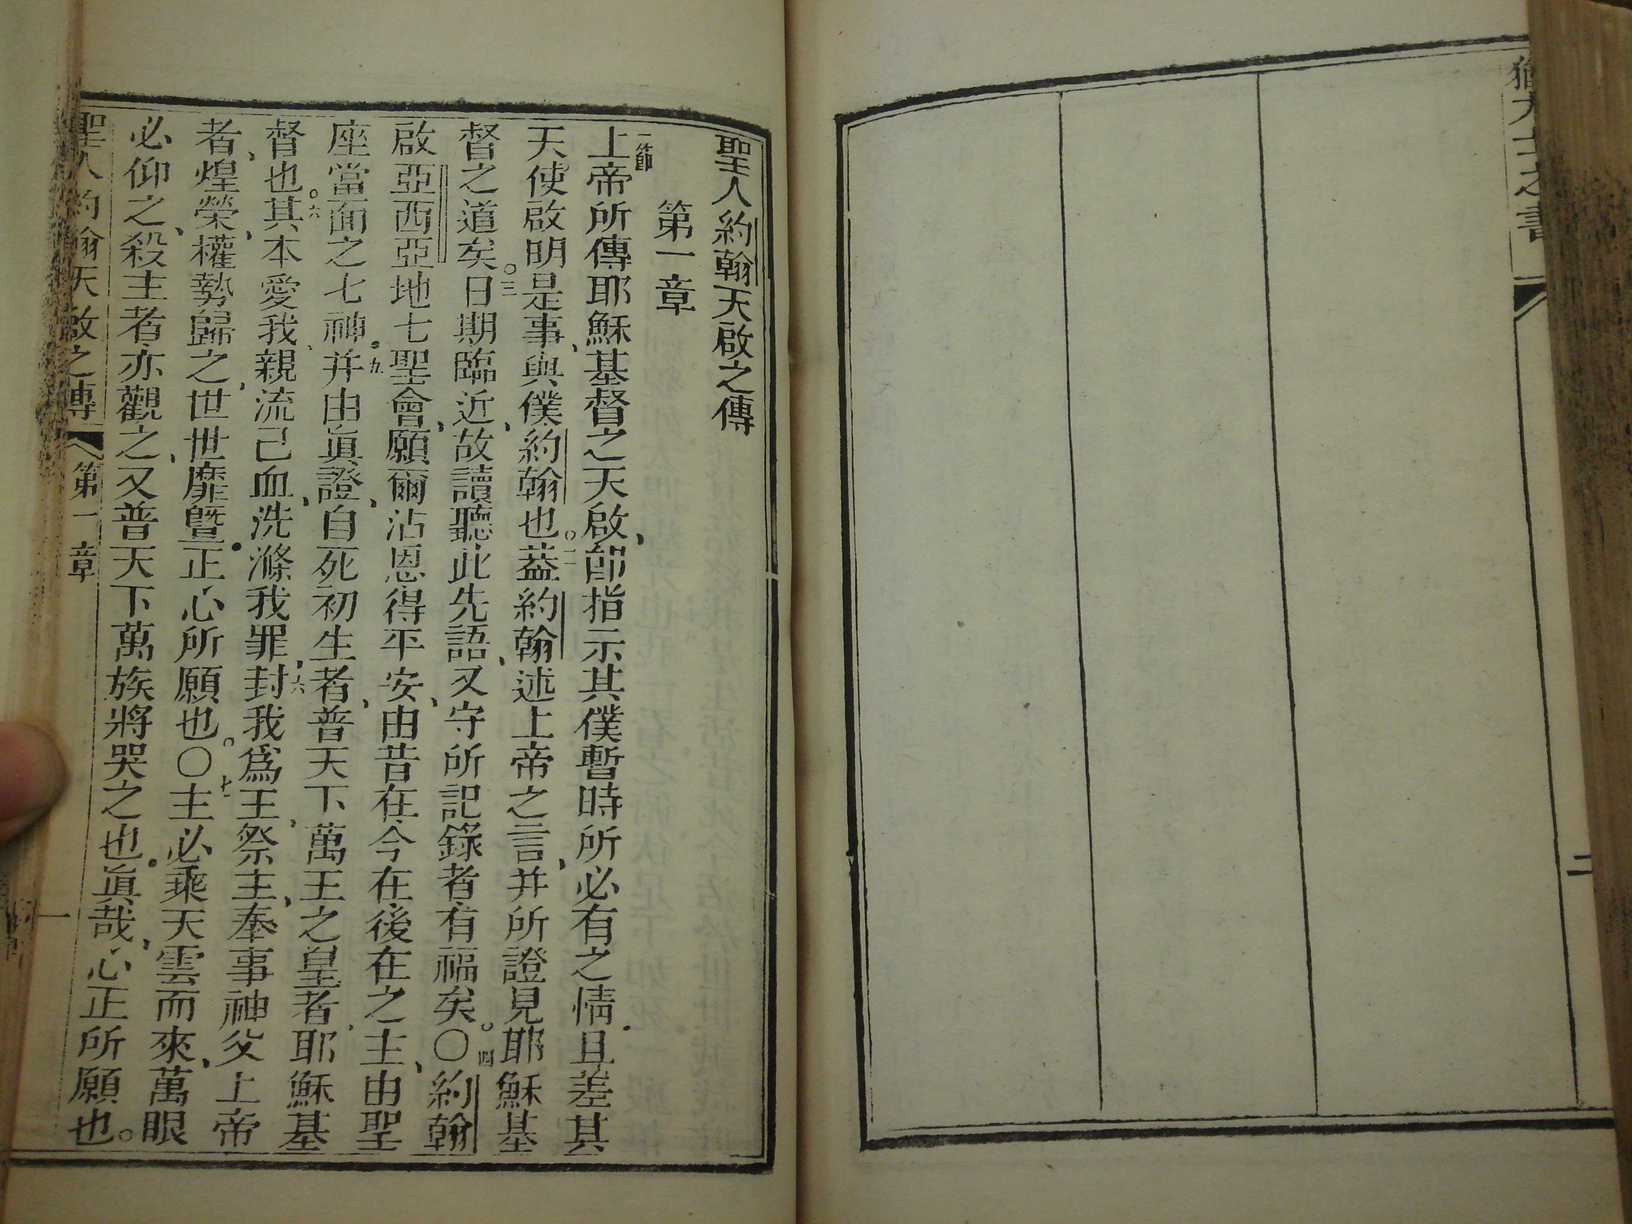 猶大士之書
二
聖人約翰天啟之傳
第一章
一節
上帝所傳耶穌基督之天啟、卽指示其僕暫時所必有之情.且差其
天使啟明是事、與僕約翰也。二蓋約翰述上帝之言、并所證見耶穌基
督之道矣。三日期臨近、故讀聽此先語、又守所記錄者有福矣。〇四約翰
啟亞西亞地七聖會、願爾沾恩得平安、由昔在今在後在之主、由聖
座當面之七神.九并由眞證、自死初生者、普天下萬王之皇者、耶穌基
督也。六其本愛我、親流己血、洗滌我罪、六封我爲王、祭主、奉事神父上帝
者、煌榮、權勢歸之、世世靡曁.正心所願也。〇七主必乘天雲而來、萬眼
必仰之、殺主者亦觀之、又普天下萬族將哭之也.眞哉、心正所願也。
聖人約翰天啟之傳
第一章
一